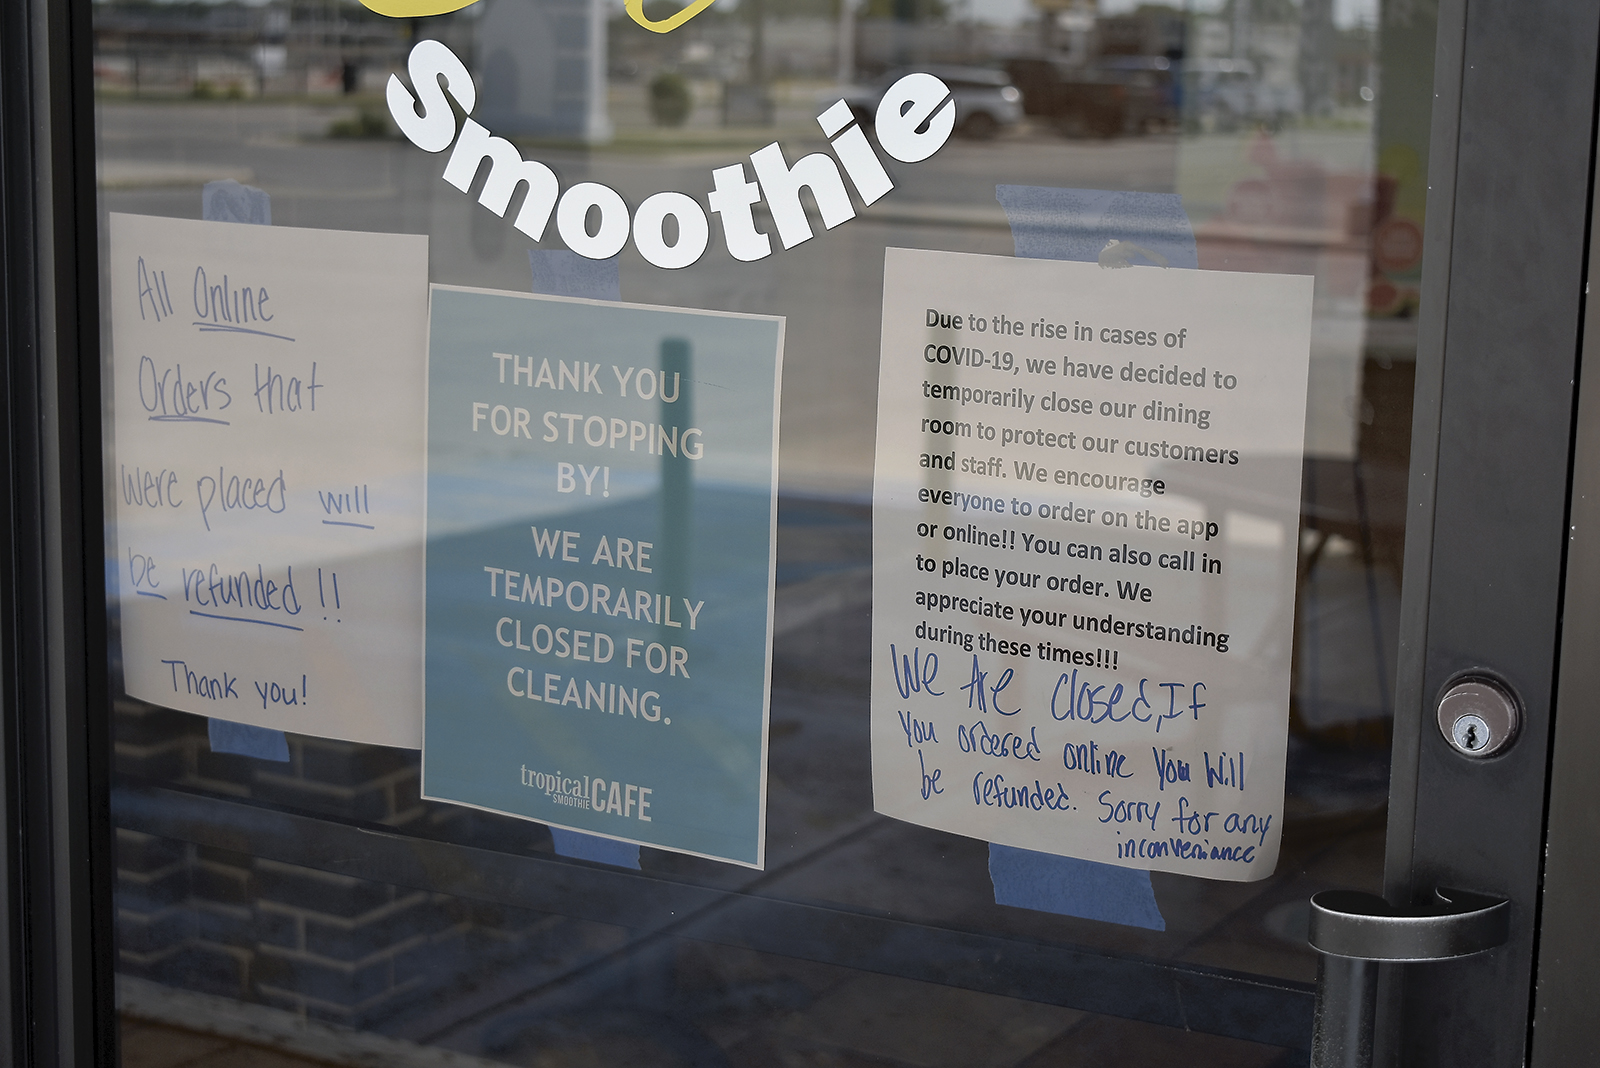 Smoothie
All Online
Orders that
were placed will
be refunded !!
Thank you!
THANK YOU
FOR STOPPING
BY!
WE ARE
TEMPORARILY
CLOSED FOR
CLEANING.
tropical
SMOOTHIE
CAFE
Due to the rise in cases of
COVID-19, we have decided to
temporarily close our dining
room to protect our customers
and staff. We encourage
everyone to order on the app
or online!! You can also call in
to place your order. We
appreciate your understanding
during these times!!!
We Are Closed, If
You ordered online You Will
be refunded. Sorry for any
inconveniance